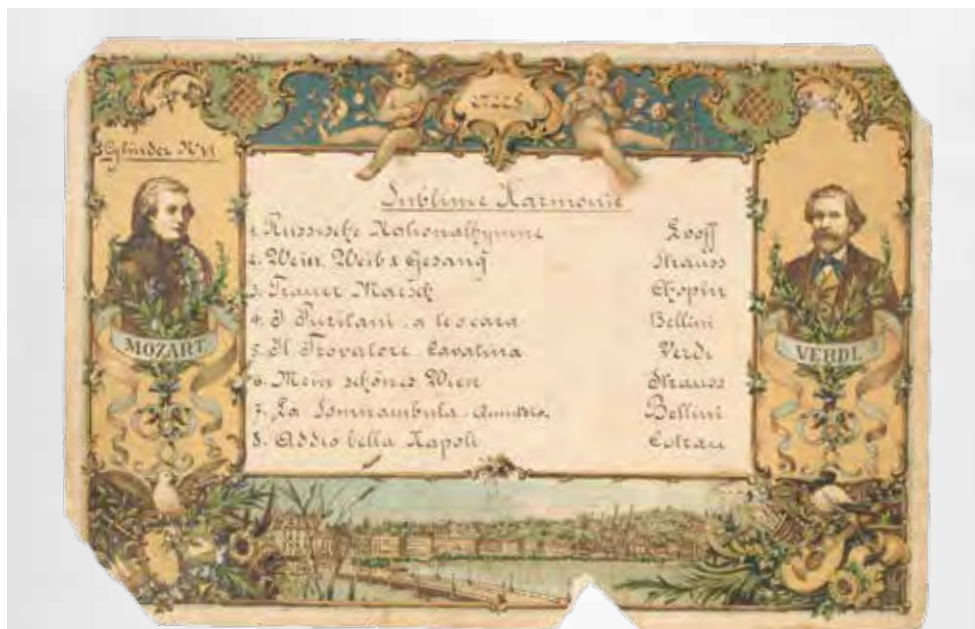 Cylinder
Sublime Harmonie
1. Russische Nationalhymne Lvoff
2. Wein, Weib & Gesang Strauss
3. Trauer Marsch Chopin
4. I Puritani, a te o cara Bellini
5. Il Trovatore Cavatina Verdi
6. Mein schönes Wien Strauss
7. La Sonnambula Bellini
8. Addio bella Napoli Cotrau
MOZART
VERDI